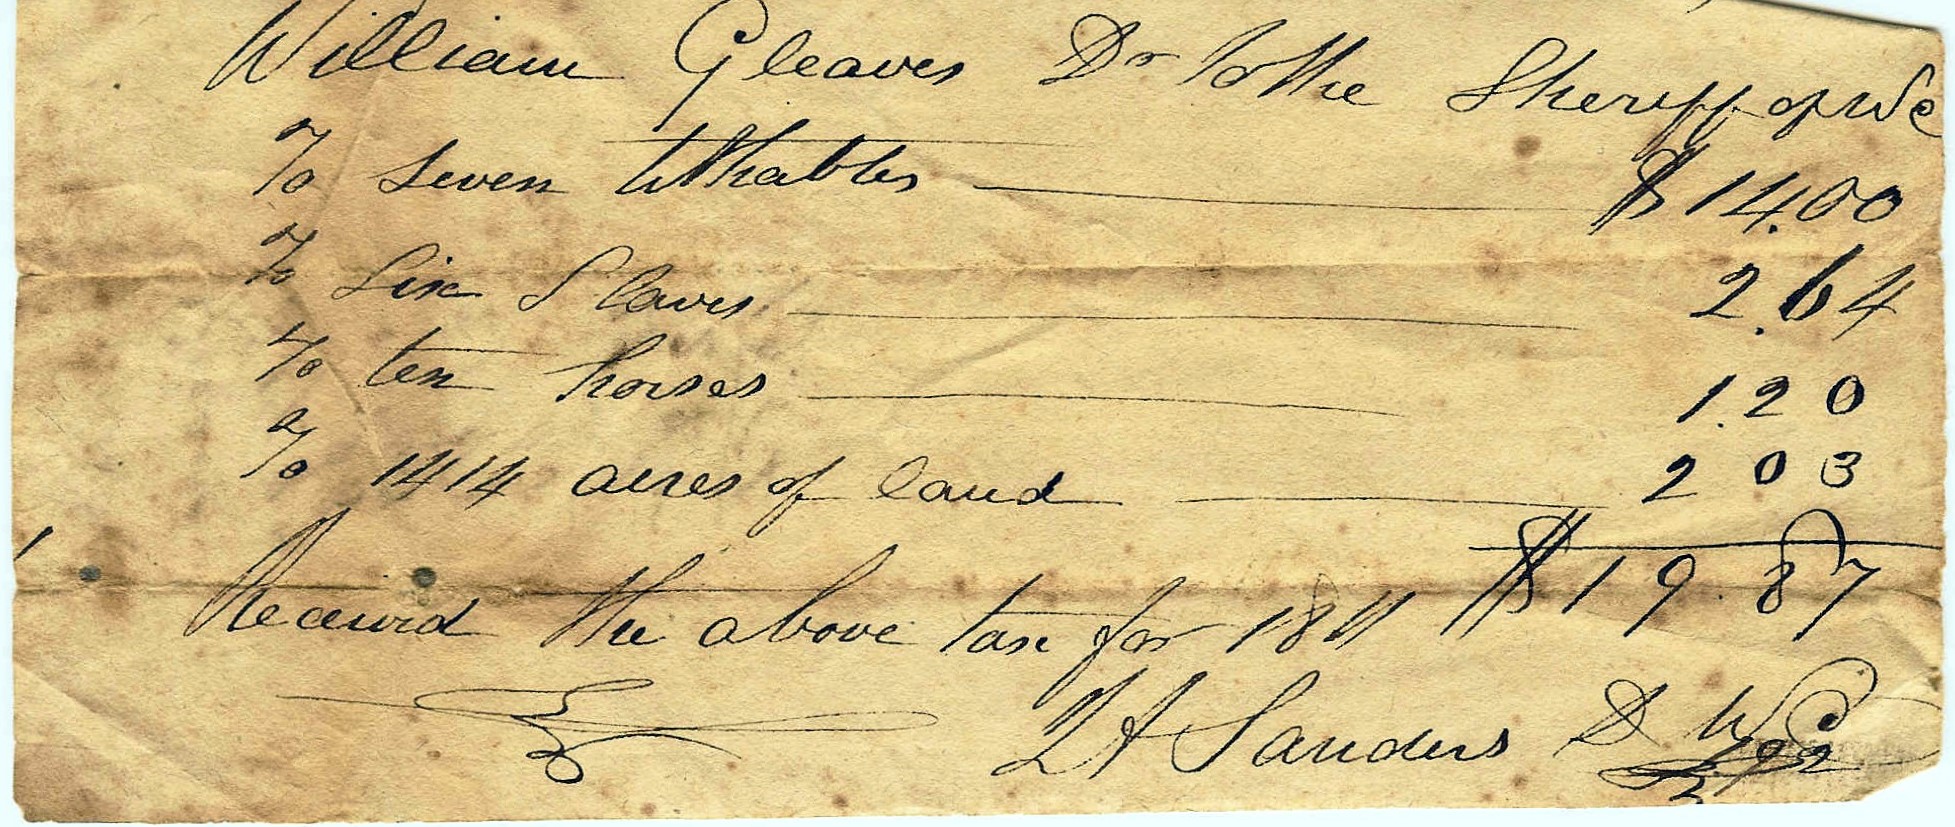 William Gleaves Dr To the Sheriff of Wc
To Seven tithables $14.00
To Six Slaves 2.64
To ten horses 1.20
To 1414 acres of land 2 03
$19.87
Received the above tax for 1811
Sanders D